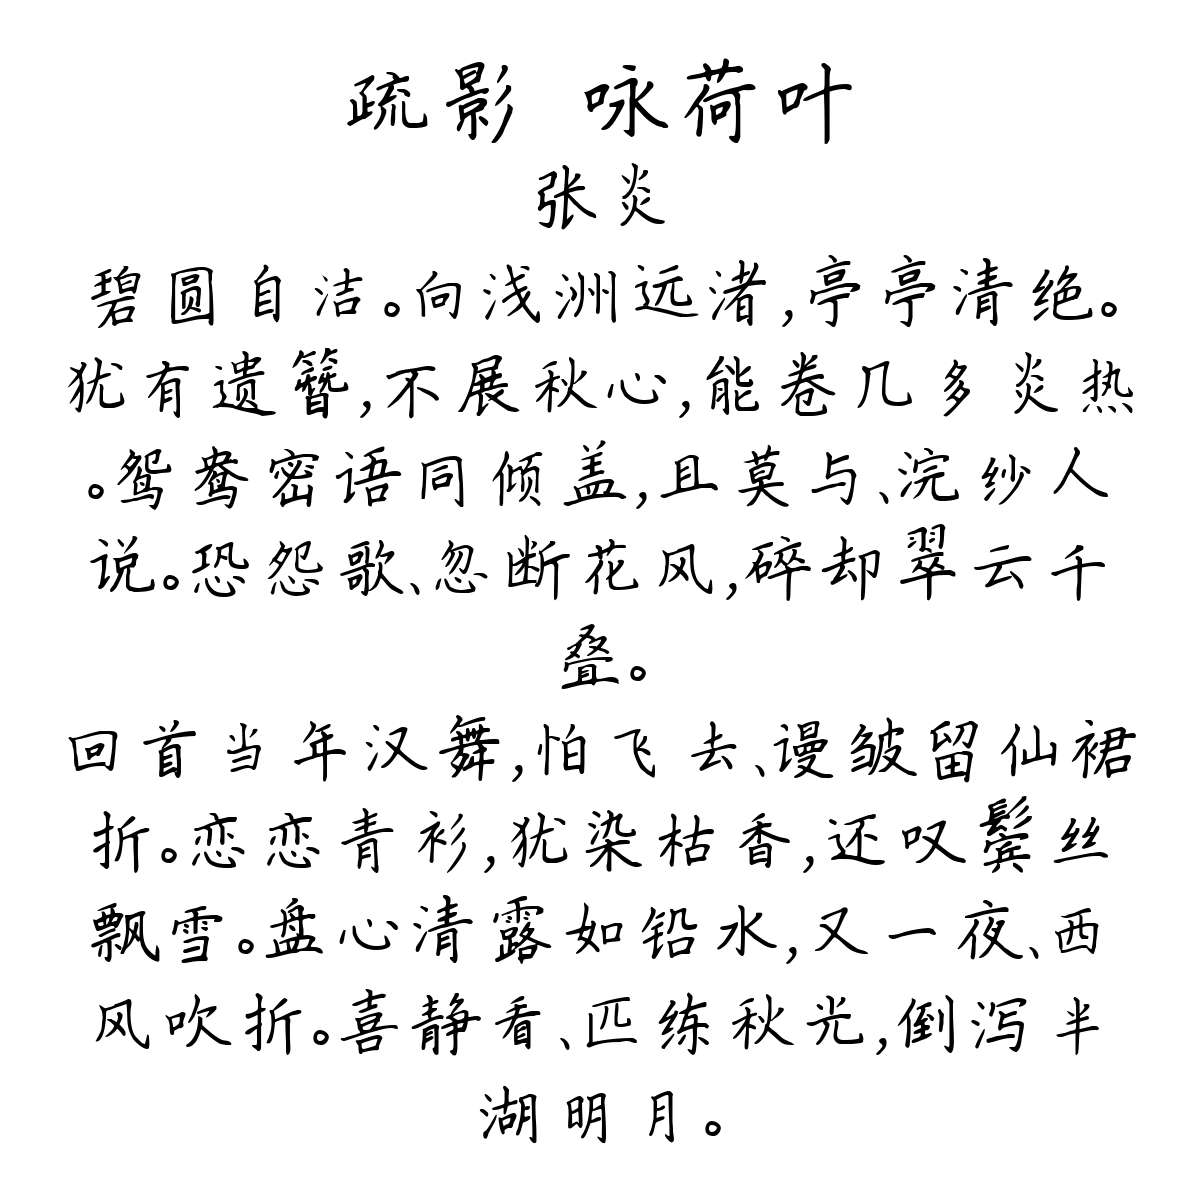 疏影 咏荷叶
张炎
碧圆自洁。向浅洲远渚,亭亭清绝。
犹有遗簪,不展秋心,能卷几多炎热
。鸳鸯密语同倾盖,且莫与、浣纱人
说。恐怨歌、忽断花风,碎却翠云千
叠。
回首当年汉舞,怕飞去、谩皱留仙裙
折。恋恋青衫,犹染枯香,还叹鬓丝
飘雪。盘心清露如铅水,又一夜、西
风吹折。喜静看、匹练秋光,倒泻半
湖明月。